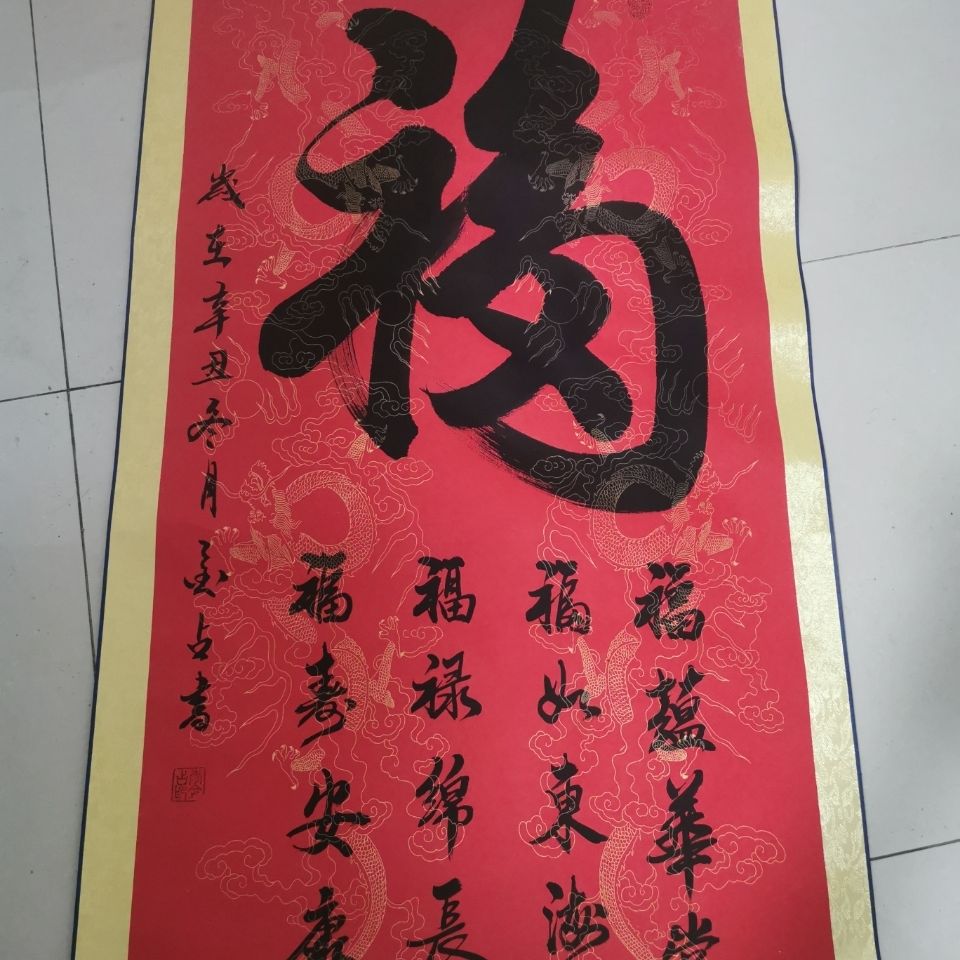 福
福蕴華堂
福如東海
福禄綿長
福寿安康
歲在辛丑冬月金占書